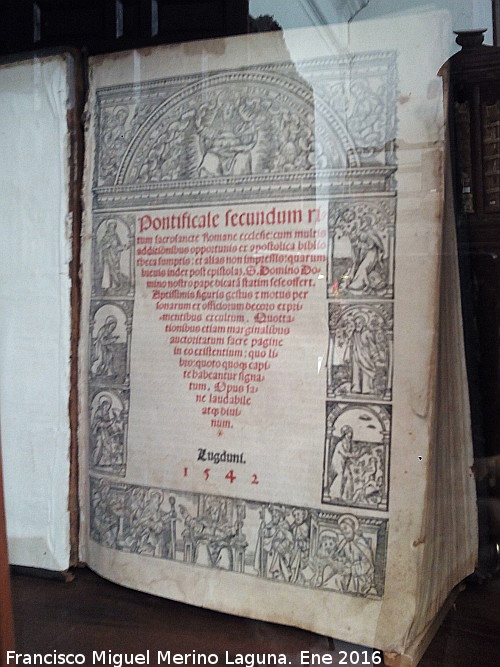 Pontificale secundum ri-
tum sacrosancte Romane ecclesie: cum multis
additionibus opportunis ex apostolica biblio
theca sumptis: et alias non impressis: quarum
index post epistolas. S. Domino Do-
mino nostro pape dicatā statim sese offert.
Aptissimis figuris gestus et motus per
sonarum et officiorum decoro expri-
mentibus excultum. Quotta-
tionibus etiam marginalibus
auctoritatum sacre pagine
in eo existentium: quo li-
bro: quoto quoqs capi-
te habeantur signa-
tum. Opus sa-
ne laudabile
atqs divi-
num.
Lugduni.
1542
Francisco Miguel Merino Laguna. Ene 2016